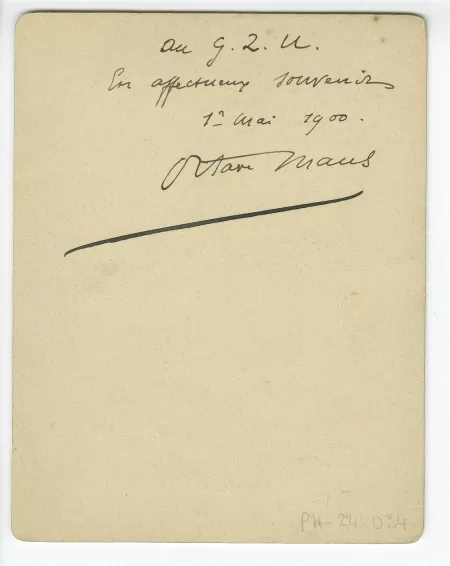 au G. Z. U.
En affectueux souvenir
1er Mai 1900.
Octave Maus
PH-24-034